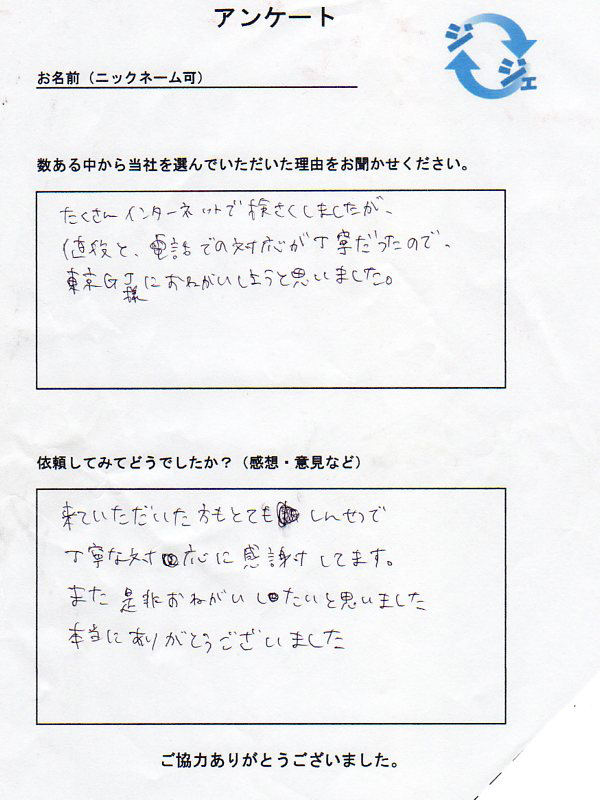 アンケート
ジジェ
お名前（ニックネーム可）
数ある中から当社を選んでいただいた理由をお聞かせください。
たくさんインターネットで検さくしましたが、
値段と、電話での対応が丁寧だったので、
東京GJ様におねがいしようと思いました。
依頼してみてどうでしたか？（感想・意見など）
来ていただいた方もとても しんせつで
丁寧な対応に感謝してます。
また是非おねがいしたいと思いました
本当にありがとうございました
ご協力ありがとうございました。